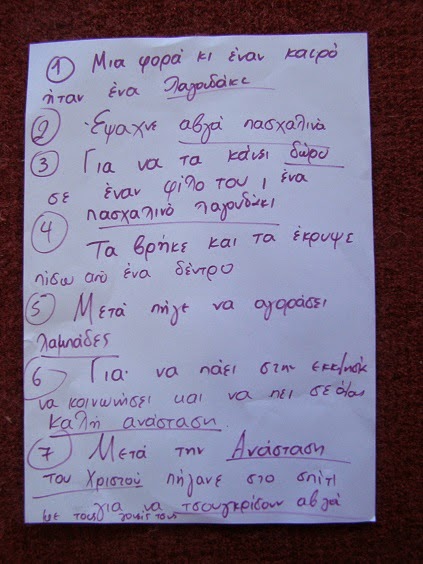 1 Μια φορά κι έναν καιρό
ήταν ένα λαγουδάκι
2 Έψαχνε αβγά πασχαλινά
3 Για να τα κάνει δώρο
σε έναν φίλο του, ένα
πασχαλινό λαγουδάκι
4 Τα βρήκε και τα έκρυψε
πίσω από ένα δέντρο
5 Μετά πήγε να αγοράσει
λαμπάδες
6 Για να πάει στην
να κοινωνήσει και να πει σε όλους
καλή ανάσταση.
7 Μετά την Ανάσταση
του Χριστού πήγανε στο σπίτι
για να τσουγκρίσουν αβγά
με τους γονείς τους